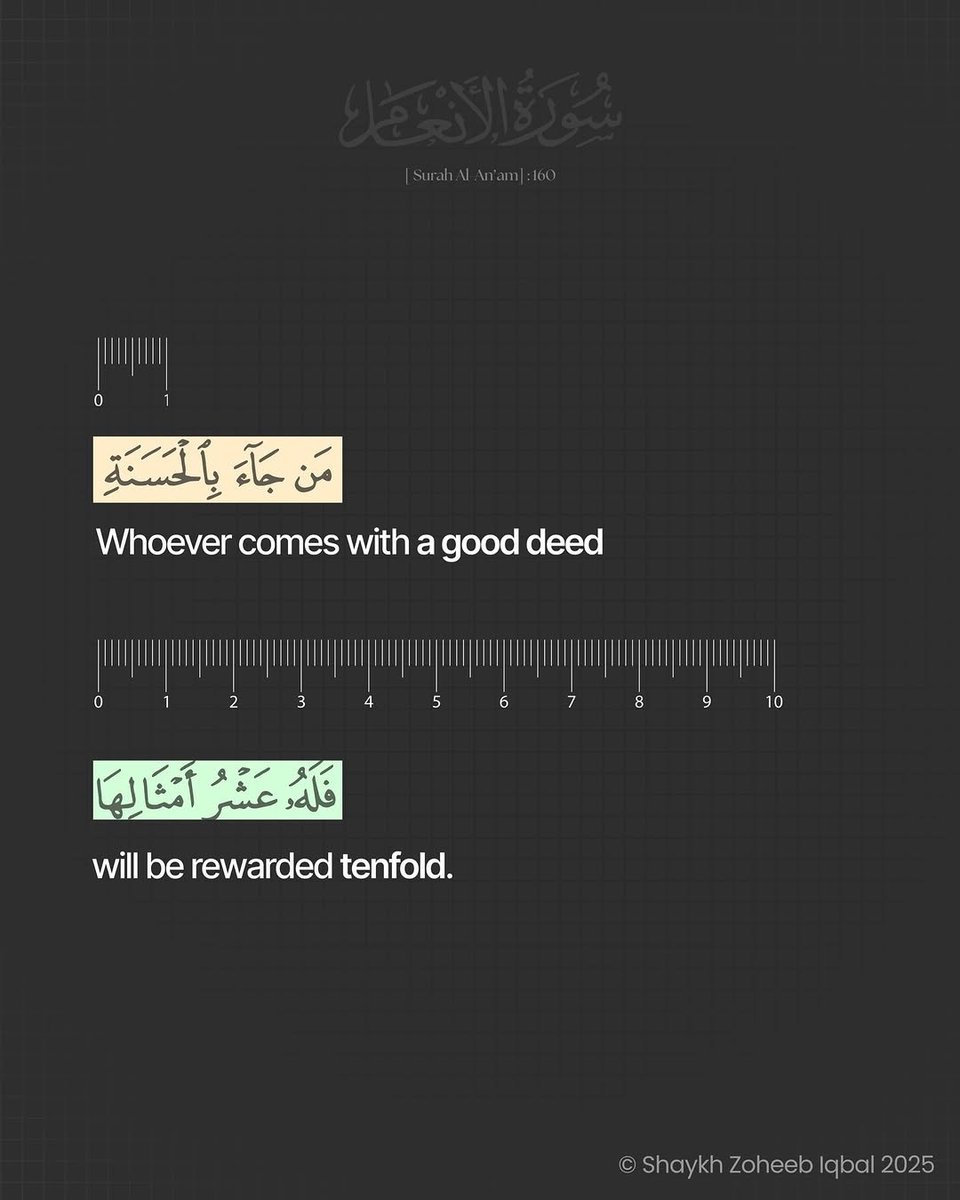 سُورَةُ الأَنْعَامِ
[ Surah Al An'am] : 160
0 1
مَن جَآءَ بِٱلْحَسَنَةِ
Whoever comes with a good deed
0 1 2 3 4 5 6 7 8 9 10
فَلَهُۥ عَشْرُ أَمْثَالِهَا
will be rewarded tenfold.
© Shaykh Zoheeb Iqbal 2025